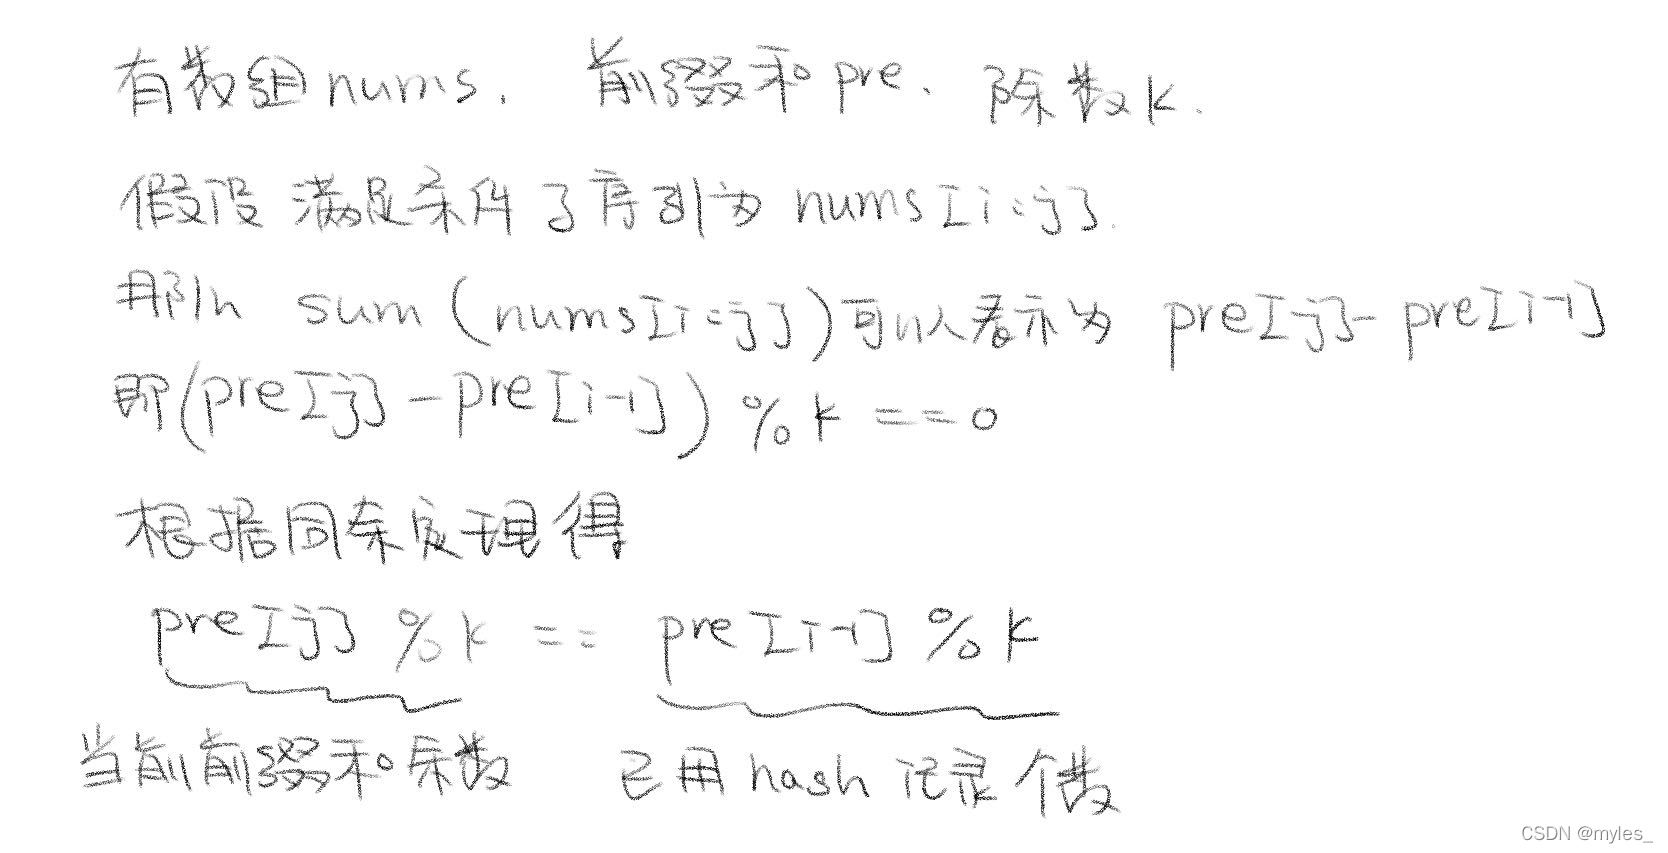 有数组nums. 前缀和pre. 除数k.
假设 满足条件子序列为 nums[i:j].
那么 sum(nums[i:j])可以表示为 pre[j]-pre[i-1]
即(pre[j]-pre[i-1]) % k == 0
根据同余定理得
pre[j] % k == pre[i-1] % k
当前前缀和余数 已用hash记录个数
CSDN @myles_